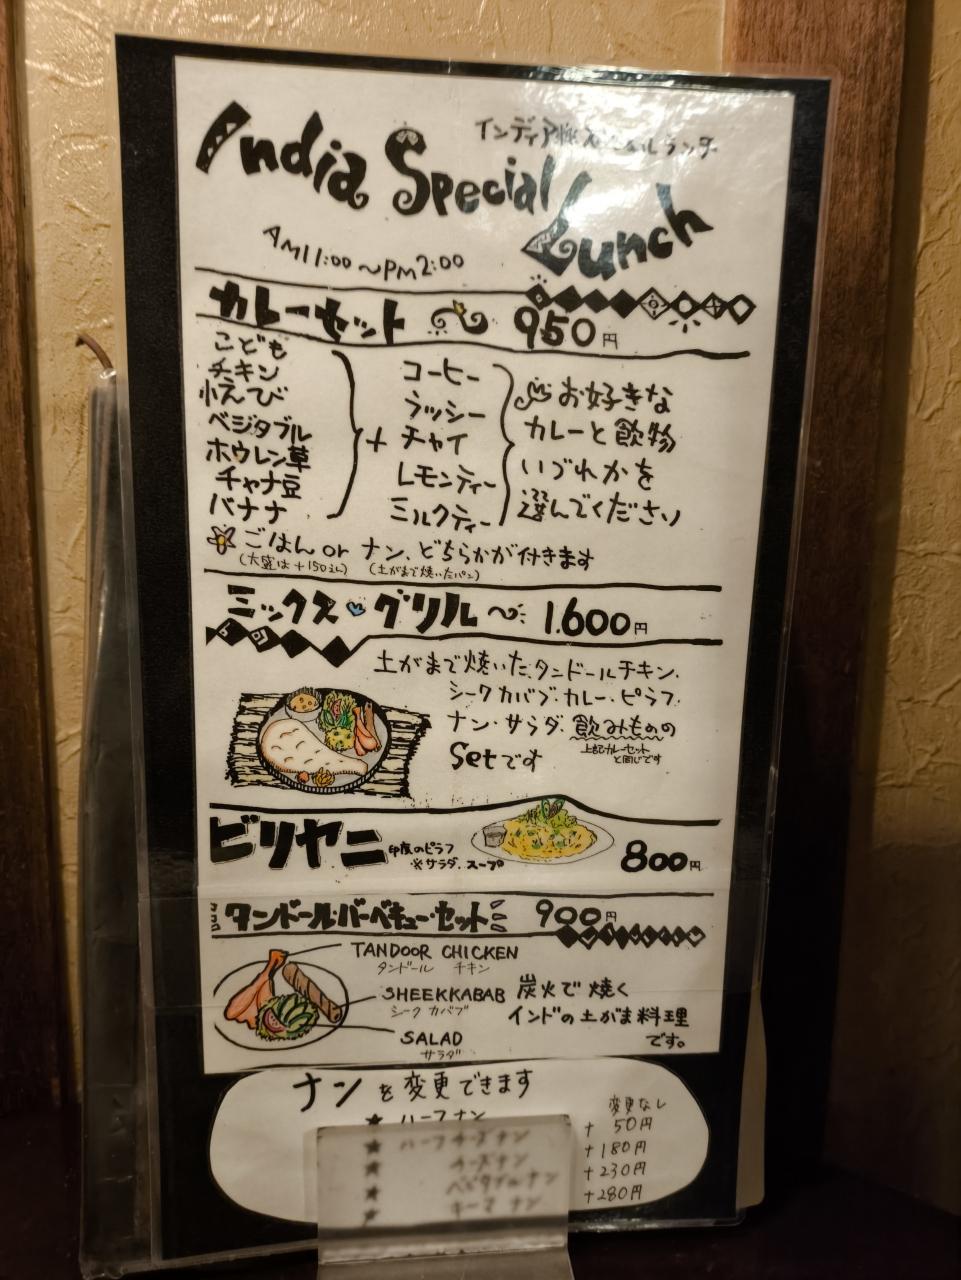 インディア スペシャルランチ
India Special Lunch
AM11:00～PM2:00
カレーセット 950円
こども
チキン
小えび
ベジタブル
ホウレン草
チャナ豆
バナナ
+
コーヒー
ラッシー
チャイ
レモンティー
ミルクティー
お好きな
カレーと飲物
いづれかを
選んでください
ごはん or ナン、どちらかが付きます
(大盛は+150えん) (土がまで焼いたパン)
ミックス・グリル 1.600円
土がまで焼いた、タンドールチキン、
シークカバブ・カレー・ピラフ
ナン・サラダ、飲みものの
Setです
上記カレーセット
と同じです
ビリヤニ 印度のピラフ
※サラダ、スープ
800円
タンドール・バーベキュー・セット 900円
TANDOOR CHICKEN
タンドール チキン
SHEEKKABAB
シーク カバブ
SALAD
サラダ
炭火で焼く
インドの土がま料理
です。
ナンを変更できます
★ ハーフナン 変更なし
★ ハーフチーズナン + 50円
★ チーズナン +180円
★ ベジタブルナン +230円
★ キーマナン +280円